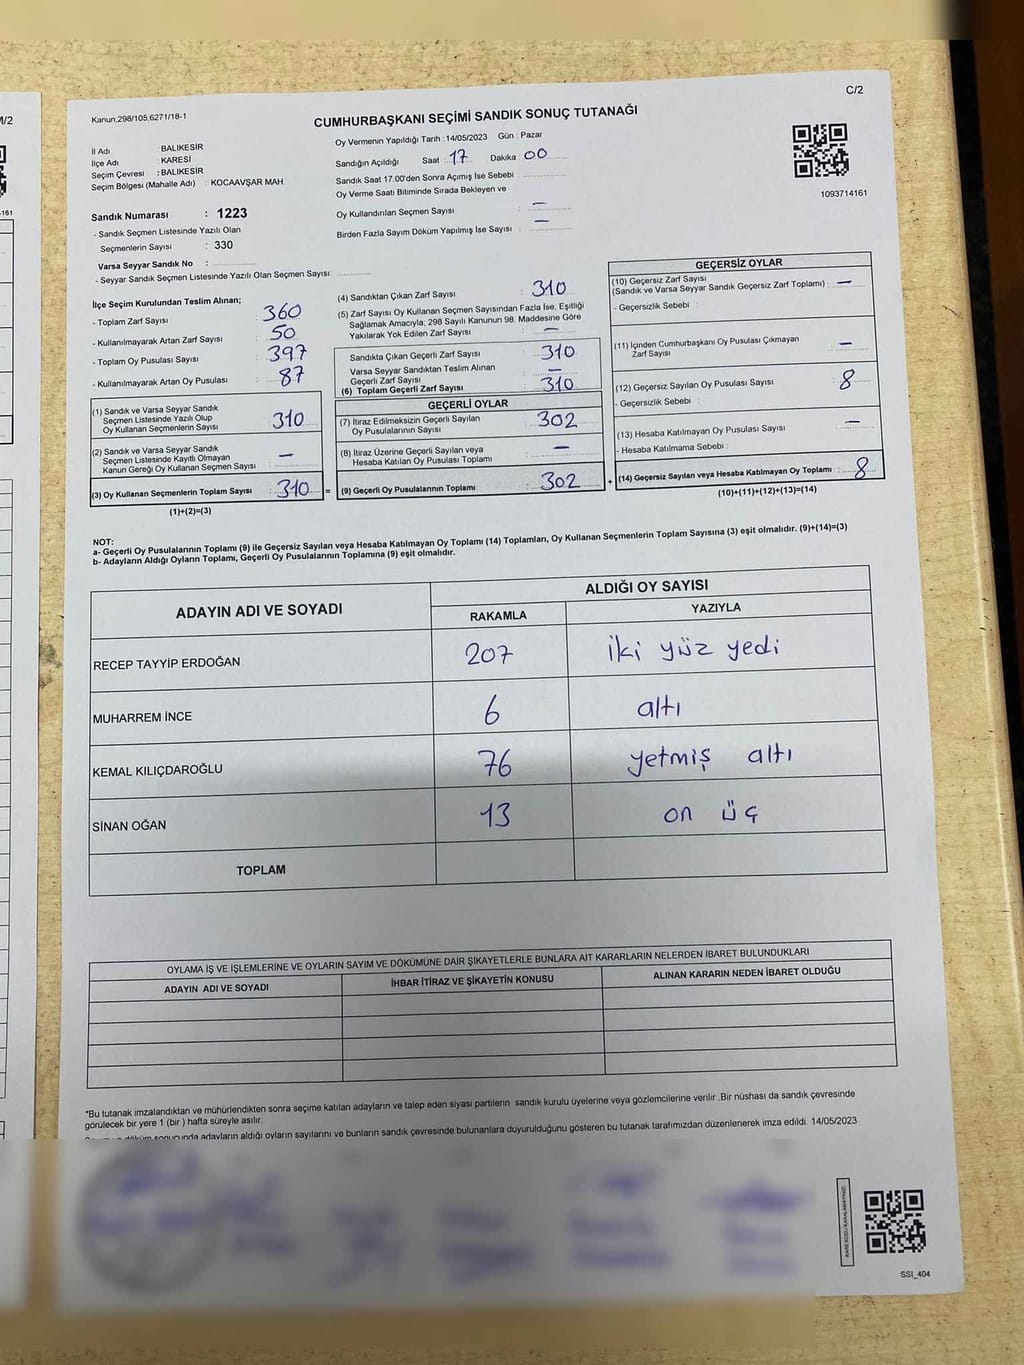 C/2
Kanun,298/105,6271/18-1
CUMHURBAŞKANI SEÇİMİ SANDIK SONUÇ TUTANAĞI
Oy Vermenin Yapıldığı Tarih : 14/05/2023 Gün : Pazar
İl Adı : BALIKESİR
İlçe Adı : KARESİ
Seçim Çevresi : BALIKESİR
Seçim Bölgesi (Mahalle Adı) : KOCAAVŞAR MAH.
Sandığın Açıldığı Saat : 17 Dakika : 00
Sandık Saat 17.00'den Sonra Açımış İse Sebebi :
Oy Verme Saati Bitiminde Sırada Bekleyen ve
Oy Kullandırılan Seçmen Sayısı : —
Birden Fazla Sayım Döküm Yapılmış İse Sayısı : —
1093714161
Sandık Numarası : 1223
- Sandık Seçmen Listesinde Yazılı Olan
Seçmenlerin Sayısı : 330
Varsa Seyyar Sandık No :
- Seyyar Sandık Seçmen Listesinde Yazılı Olan Seçmen Sayısı:
İlçe Seçim Kurulundan Teslim Alınan;
- Toplam Zarf Sayısı : 360
- Kullanılmayarak Artan Zarf Sayısı : 50
- Toplam Oy Pusulası Sayısı : 397
- Kullanılmayarak Artan Oy Pusulası : 87
(1) Sandık ve Varsa Seyyar Sandık
Seçmen Listesinde Yazılı Olup
Oy Kullanan Seçmenlerin Sayısı : 310
(2) Sandık ve Varsa Seyyar Sandık
Seçmen Listesinde Kayıtlı Olmayan
Kanun Gereği Oy Kullanan Seçmen Sayısı : —
(3) Oy Kullanan Seçmenlerin Toplam Sayısı : 310 =
(1)+(2)=(3)
(4) Sandıktan Çıkan Zarf Sayısı : 310
(5) Zarf Sayısı Oy Kullanan Seçmen Sayısından Fazla İse, Eşitliği
Sağlamak Amacıyla; 298 Sayılı Kanunun 98. Maddesine Göre
Yakılarak Yok Edilen Zarf Sayısı : —
Sandıkta Çıkan Geçerli Zarf Sayısı : 310
Varsa Seyyar Sandıktan Teslim Alınan
Geçerli Zarf Sayısı : —
(6) Toplam Geçerli Zarf Sayısı : 310
GEÇERLİ OYLAR
(7) İtiraz Edilmeksizin Geçerli Sayılan
Oy Pusulalarının Sayısı : 302
(8) İtiraz Üzerine Geçerli Sayılan veya
Hesaba Katılan Oy Pusulası Toplamı : —
(9) Geçerli Oy Pusulalarının Toplamı : 302 +
GEÇERSİZ OYLAR
(10) Geçersiz Zarf Sayısı
(Sandık ve Varsa Seyyar Sandık Geçersiz Zarf Toplamı) : —
- Geçersizlik Sebebi :
(11) İçinden Cumhurbaşkanı Oy Pusulası Çıkmayan
Zarf Sayısı : —
(12) Geçersiz Sayılan Oy Pusulası Sayısı : 8
- Geçersizlik Sebebi :
(13) Hesaba Katılmayan Oy Pusulası Sayısı : —
- Hesaba Katılmama Sebebi :
(14) Geçersiz Sayılan veya Hesaba Katılmayan Oy Toplamı : 8
(10)+(11)+(12)+(13)=(14)
NOT:
a- Geçerli Oy Pusulalarının Toplamı (9) ile Geçersiz Sayılan veya Hesaba Katılmayan Oy Toplamı (14) Toplamları, Oy Kullanan Seçmenlerin Toplam Sayısına (3) eşit olmalıdır. (9)+(14)=(3)
b- Adayların Aldığı Oyların Toplamı, Geçerli Oy Pusulalarının Toplamına (9) eşit olmalıdır.
ADAYIN ADI VE SOYADI ALDIĞI OY SAYISI
RAKAMLA YAZIYLA
RECEP TAYYİP ERDOĞAN 207 iki yüz yedi
MUHARREM İNCE 6 altı
KEMAL KILIÇDAROĞLU 76 yetmiş altı
SİNAN OĞAN 13 on üç
TOPLAM
OYLAMA İŞ VE İŞLEMLERİNE VE OYLARIN SAYIM VE DÖKÜMÜNE DAİR ŞİKAYETLERLE BUNLARA AİT KARARLARIN NELERDEN İBARET BULUNDUKLARI
ADAYIN ADI VE SOYADI İHBAR İTİRAZ VE ŞİKAYETİN KONUSU ALINAN KARARIN NEDEN İBARET OLDUĞU
*Bu tutanak imzalandıktan ve mühürlendikten sonra seçime katılan adayların ve talep eden siyasi partilerin sandık kurulu üyelerine veya gözlemcilerine verilir .Bir nüshası da sandık çevresinde
görülecek bir yere 1 (bir ) hafta süreyle asılır.
döküm sonucunda adayların aldığı oyların sayılarını ve bunların sandık çevresinde bulunanlara duyurulduğunu gösteren bu tutanak tarafımızdan düzenlenerek imza edildi. 14/05/2023
SSI_404